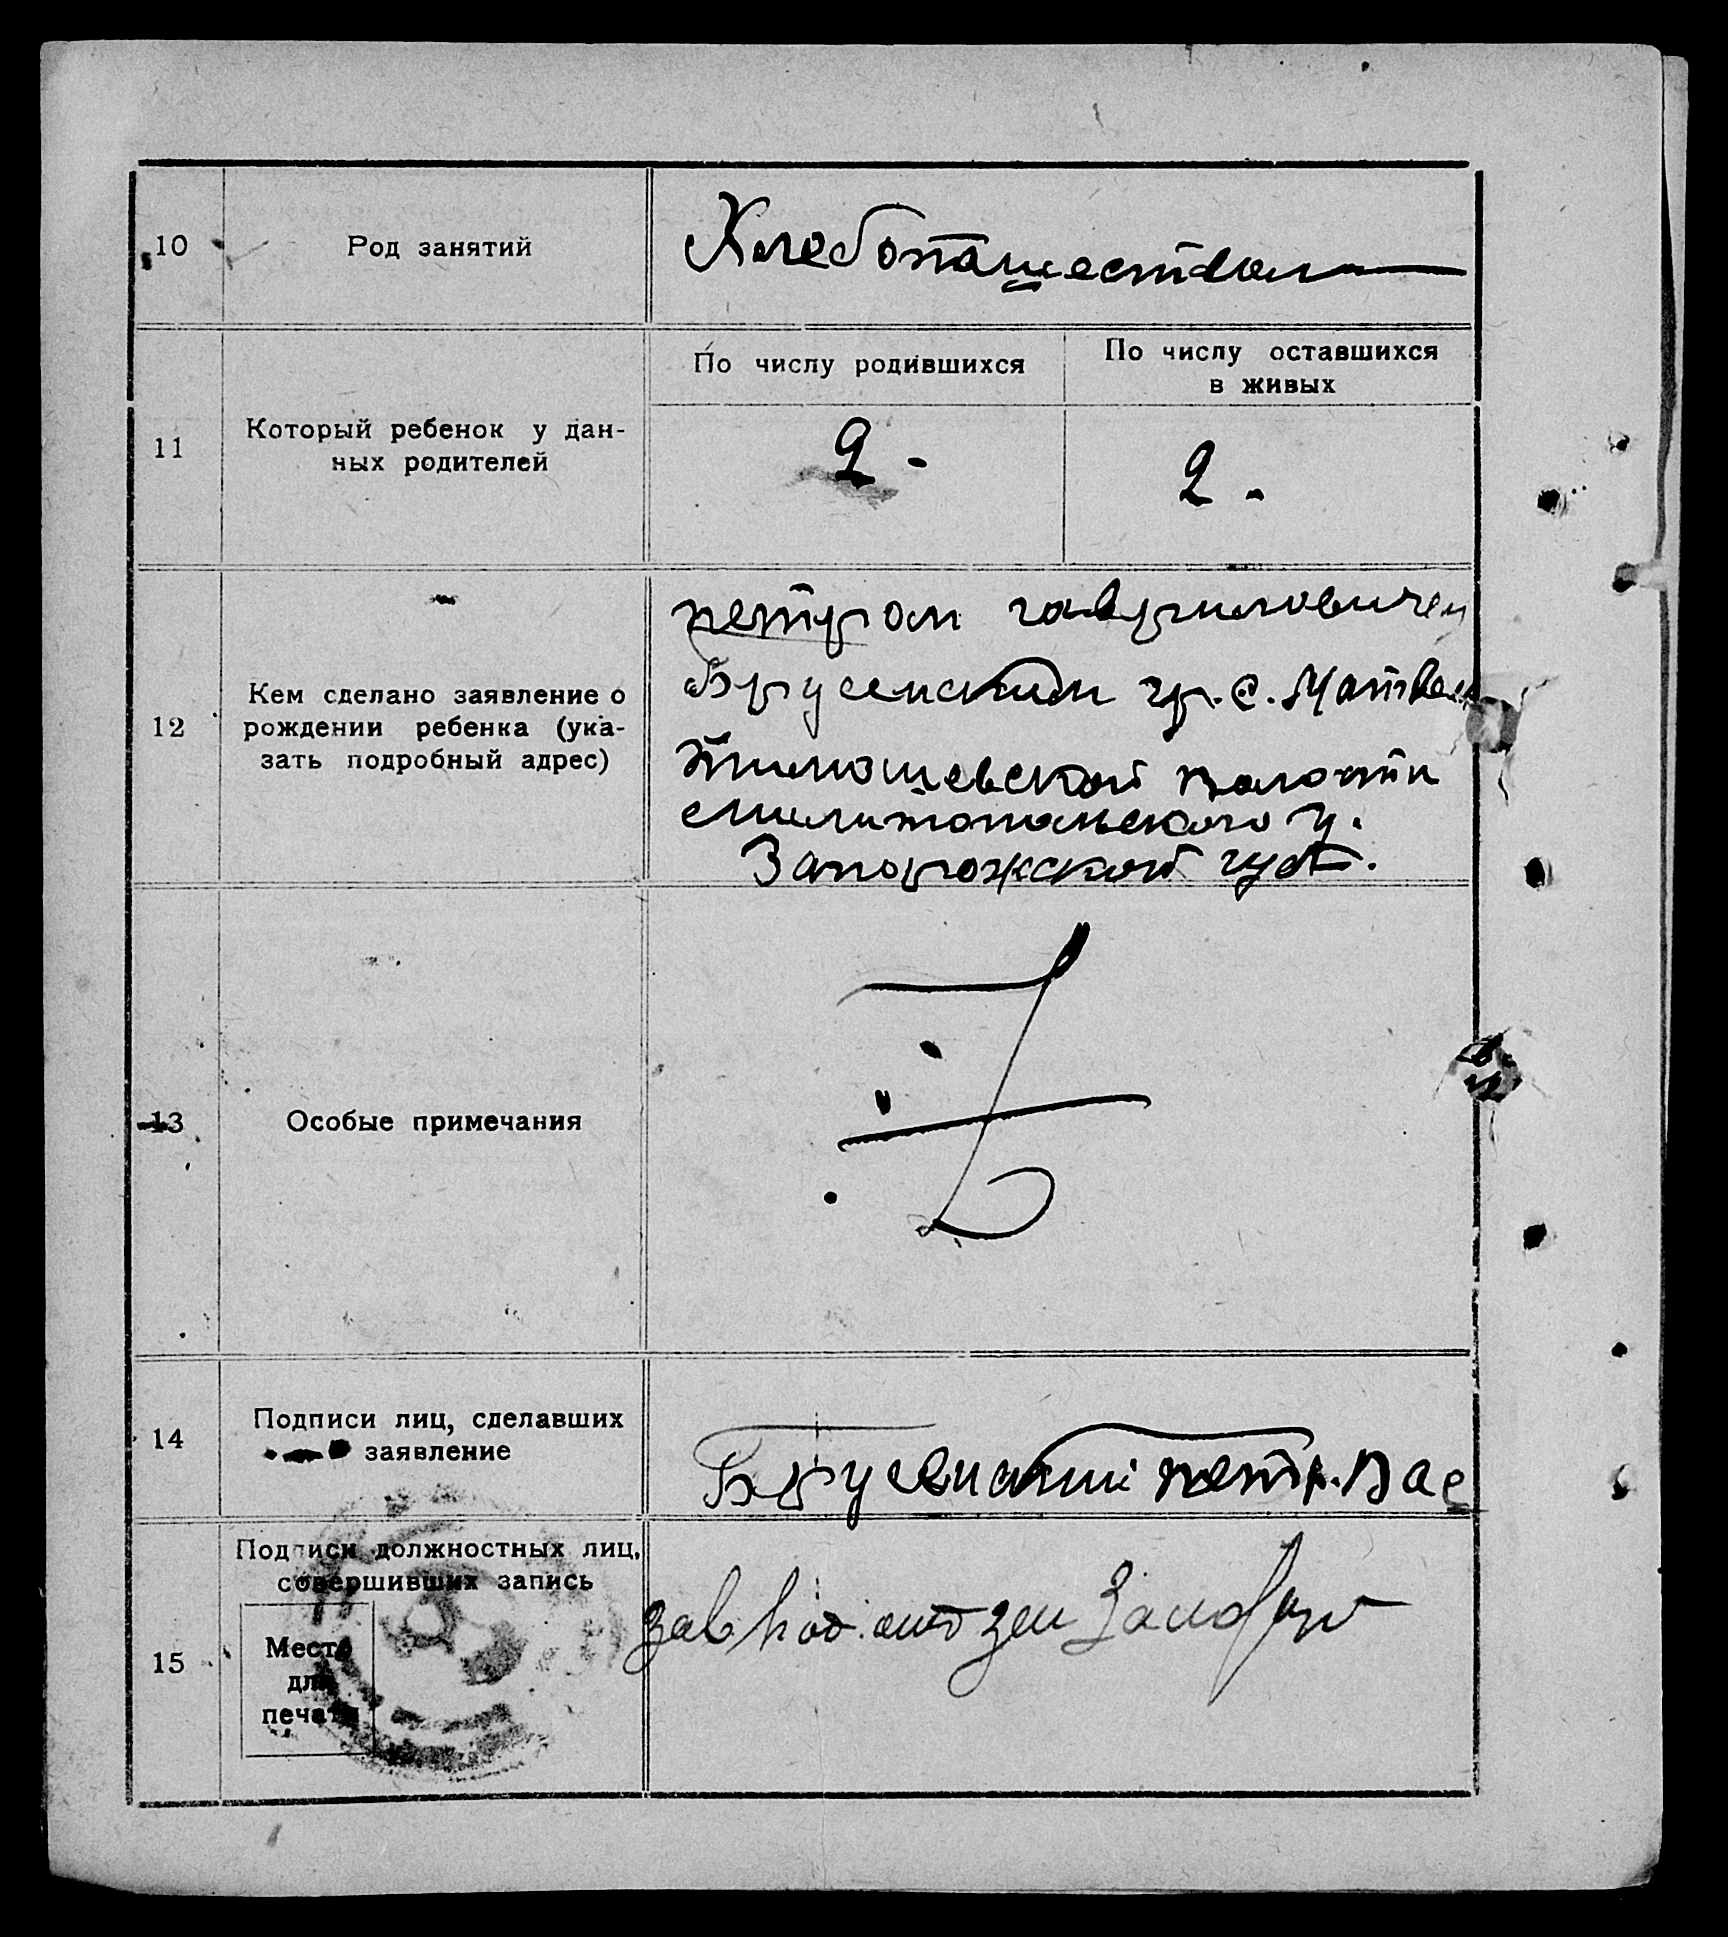 10 Род занятий Хлебопашеством
По числу родившихся По числу оставшихся
в живых
11 Который ребенок у дан-
ных родителей
2 - 2 -
12 Кем сделано заявление о
рождении ребенка (ука-
зать подробный адрес)
петром гавриловичем
гр. с.
волости
мелитопольского у.
Запорожской губ.
13 Особые примечания
14 Подписи лиц, сделавших
заявление
петр.
15 Подписи должностных лиц,
совершивших запись
Место
для
печати
зав